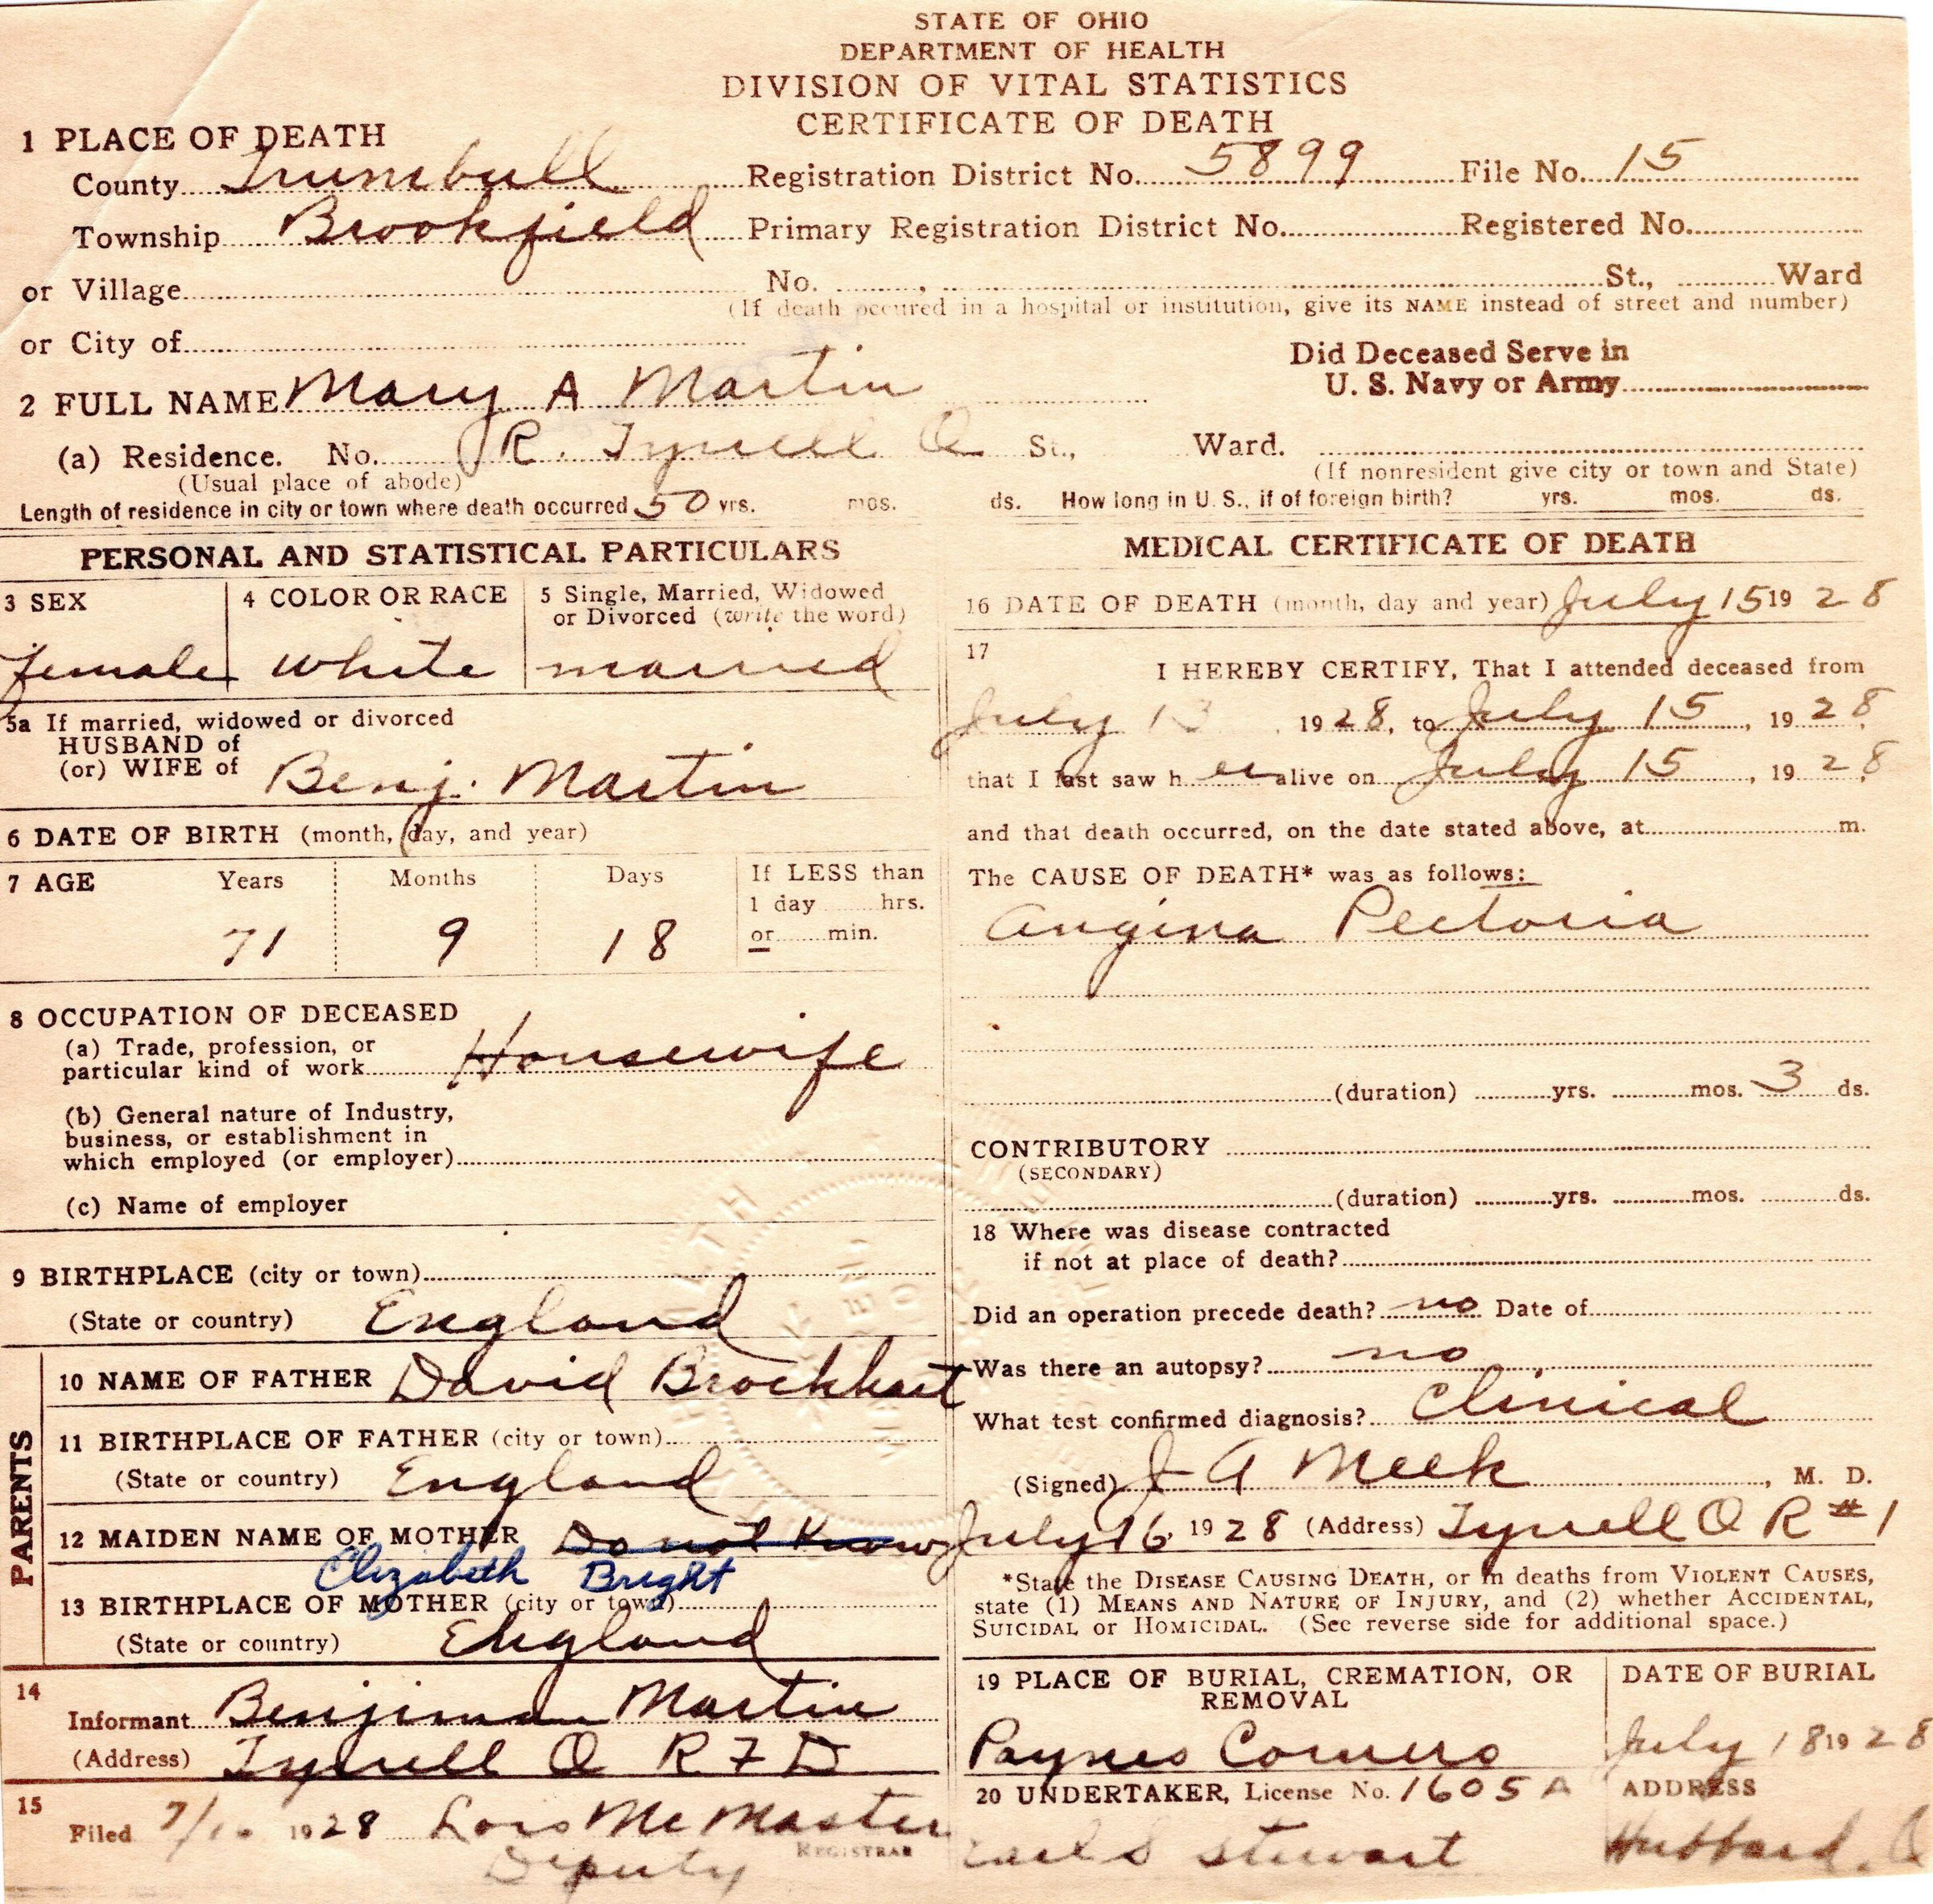 STATE OF OHIO
DEPARTMENT OF HEALTH
DIVISION OF VITAL STATISTICS
CERTIFICATE OF DEATH
1 PLACE OF DEATH
County Trumbull Registration District No. 5899 File No. 15
Township Brookfield Primary Registration District No. Registered No.
or Village No. , St., Ward
(If death occured in a hospital or institution, give its NAME instead of street and number)
or City of
Did Deceased Serve in
U. S. Navy or Army
2 FULL NAME Mary A Martin
(a) Residence. No. R. Tyrrell O St., Ward.
(Usual place of abode) (If nonresident give city or town and State)
Length of residence in city or town where death occurred 50 yrs. mos. ds. How long in U. S., if of foreign birth? yrs. mos. ds.
PERSONAL AND STATISTICAL PARTICULARS
3 SEX 4 COLOR OR RACE 5 Single, Married, Widowed
or Divorced (write the word)
female white married
5a If married, widowed or divorced
HUSBAND of
(or) WIFE of Benj. Martin
6 DATE OF BIRTH (month, day, and year)
7 AGE Years Months Days If LESS than
1 day hrs.
or min.
71 9 18
8 OCCUPATION OF DECEASED
(a) Trade, profession, or
particular kind of work Housewife
(b) General nature of Industry,
business, or establishment in
which employed (or employer)
(c) Name of employer
9 BIRTHPLACE (city or town)
(State or country) England
PARENTS
10 NAME OF FATHER David Brockhart
11 BIRTHPLACE OF FATHER (city or town)
(State or country) England
12 MAIDEN NAME OF MOTHER Do not Know
Elizabeth Bright
13 BIRTHPLACE OF MOTHER (city or town)
(State or country) England
14
Informant Benjiman Martin
(Address) Tyrrell O R F D
15
Filed 7/16 1928 Lois McMaster
Deputy REGISTRAR
MEDICAL CERTIFICATE OF DEATH
16 DATE OF DEATH (month, day and year) July 15 1928
17
I HEREBY CERTIFY, That I attended deceased from
July 13 1928, to July 15, 1928
that I last saw her alive on July 15, 1928,
and that death occurred, on the date stated above, at m.
The CAUSE OF DEATH* was as follows:
Angina Pectoria
(duration) yrs. mos. 3 ds.
CONTRIBUTORY
(SECONDARY)
(duration) yrs. mos. ds.
18 Where was disease contracted
if not at place of death?
Did an operation precede death? no Date of
Was there an autopsy? no
What test confirmed diagnosis? Clinical
(Signed) J A Meek, M. D.
July 16, 1928 (Address) Tyrrell O R #1
*State the DISEASE CAUSING DEATH, or in deaths from VIOLENT CAUSES,
state (1) MEANS AND NATURE OF INJURY, and (2) whether ACCIDENTAL,
SUICIDAL or HOMICIDAL. (See reverse side for additional space.)
19 PLACE OF BURIAL, CREMATION, OR
REMOVAL
Paynes Corners
DATE OF BURIAL
July 18 1928
20 UNDERTAKER, License No. 1605A
Earl S Stewart
ADDRESS
Hubbard, O